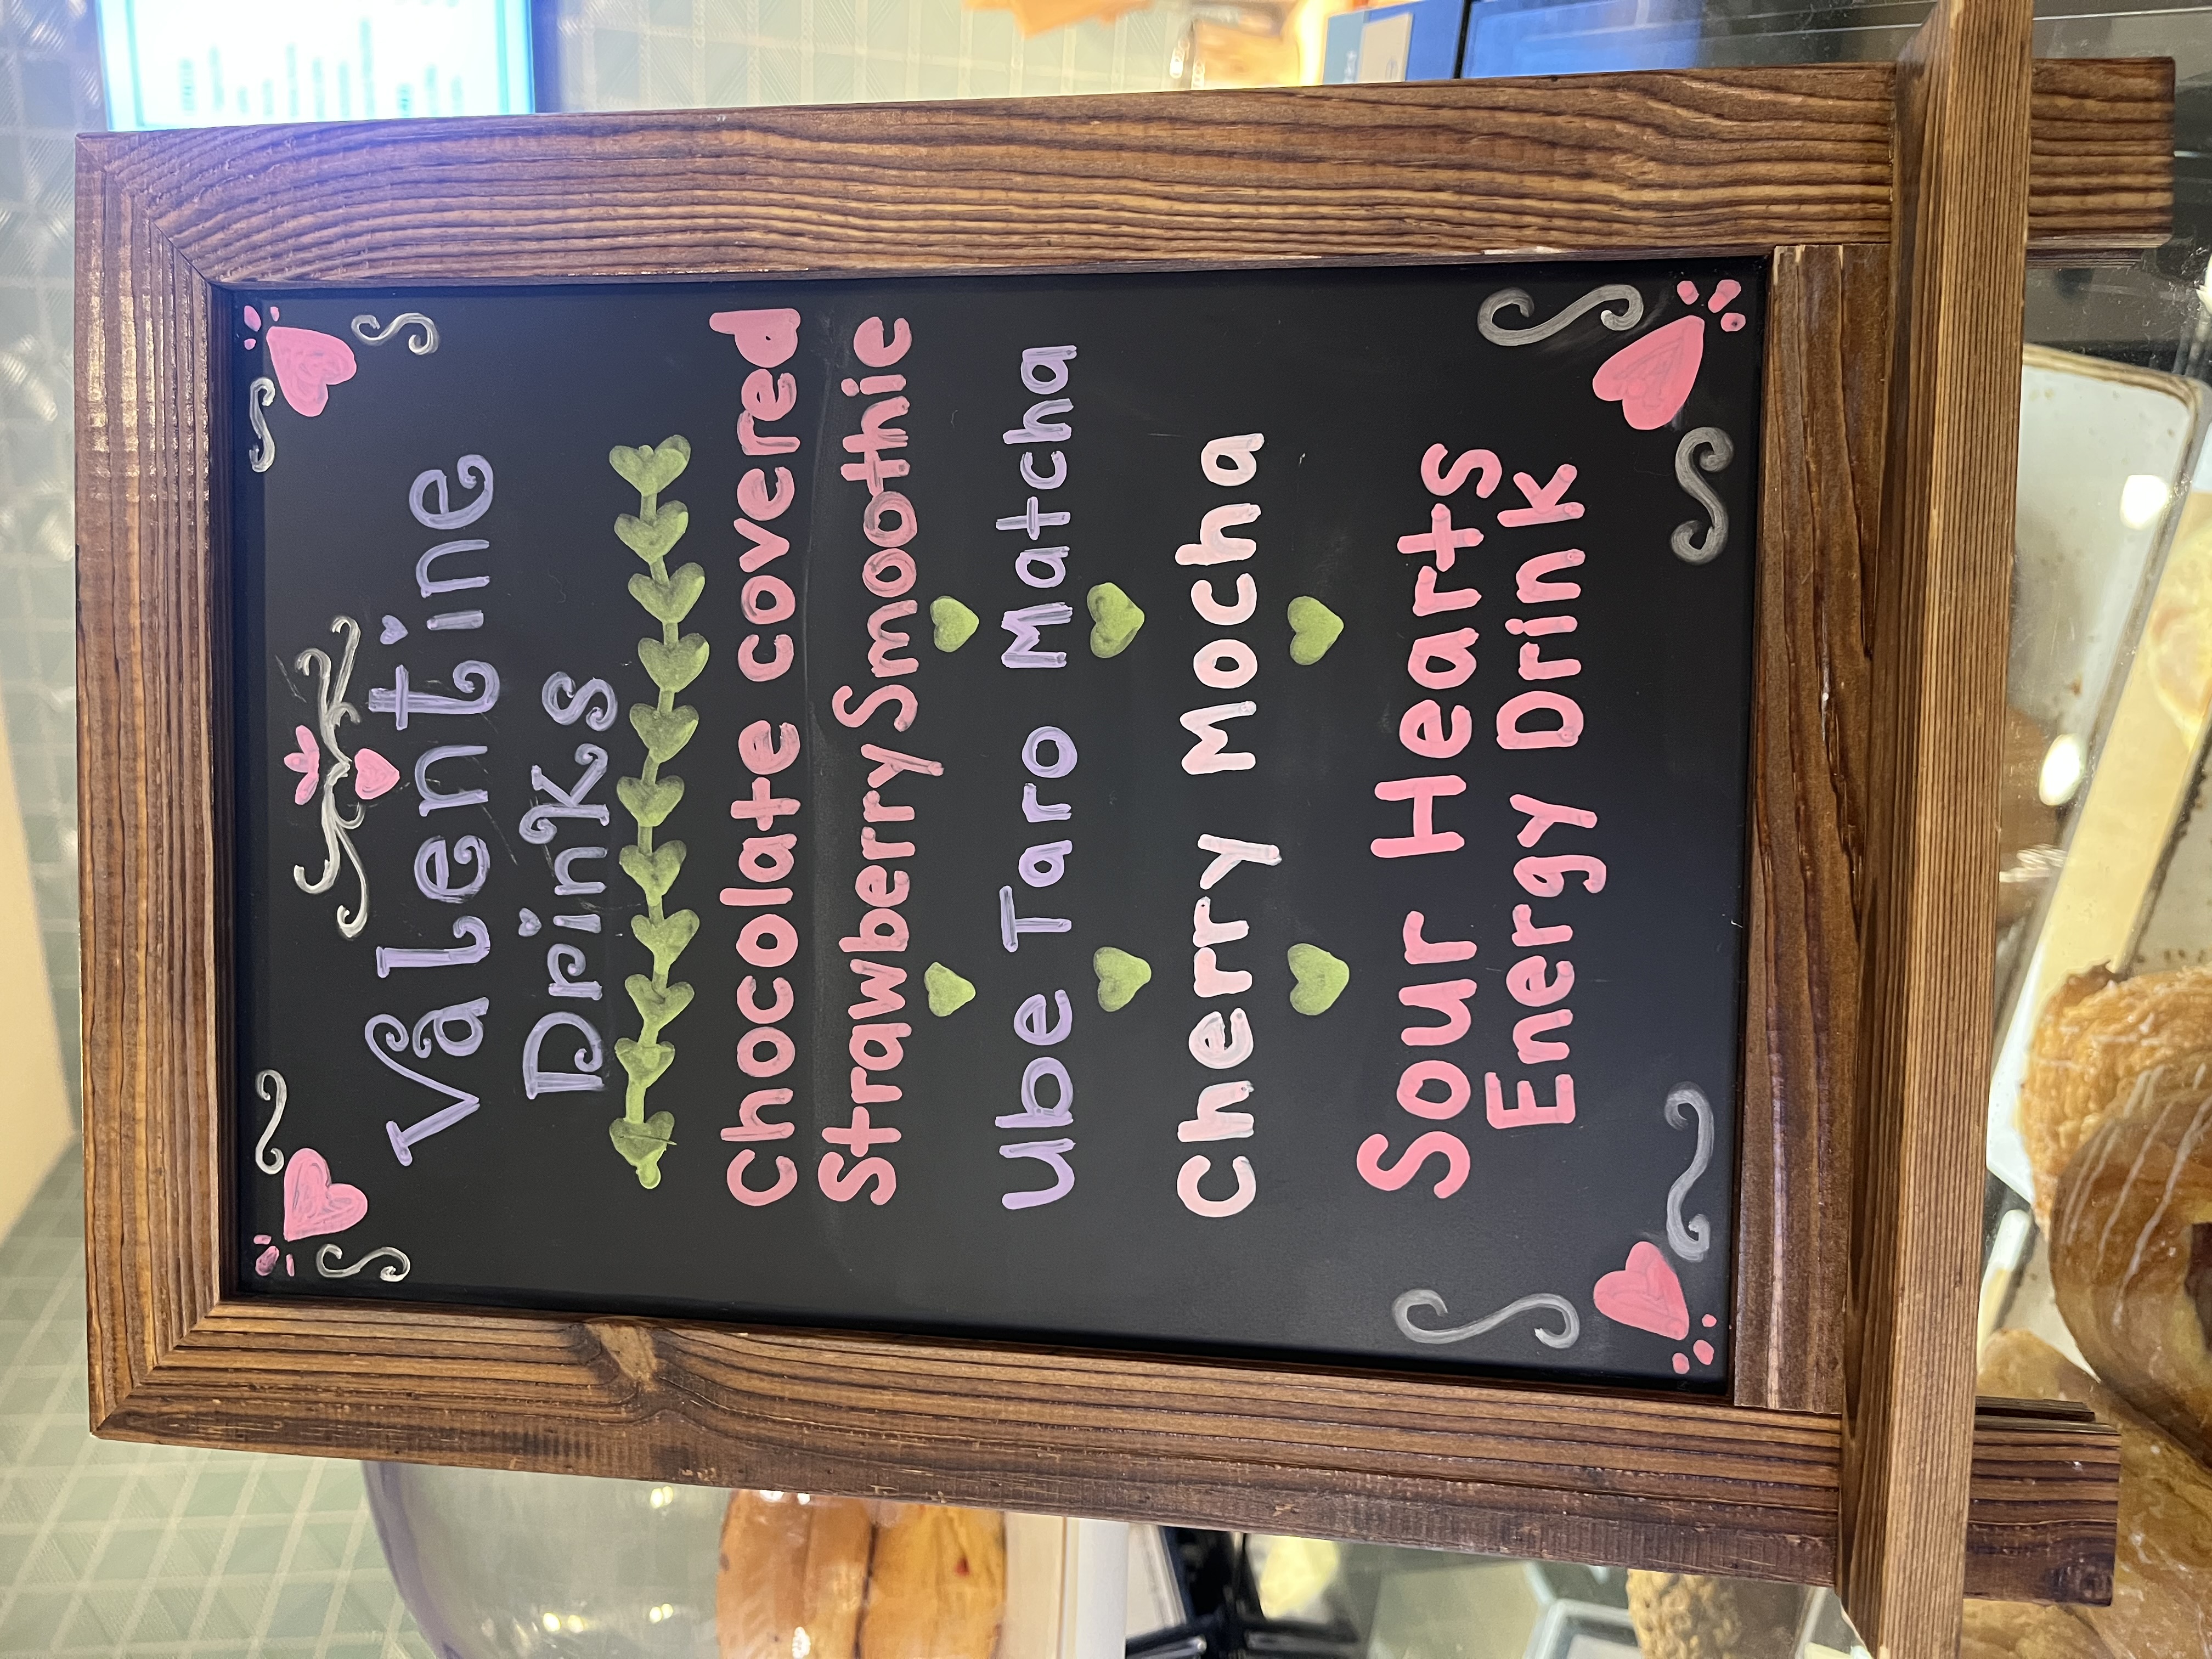 Valentine
Drinks
Chocolate covered
Strawberry Smoothie
Ube Taro Matcha
Cherry Mocha
Sour Hearts
Energy Drink